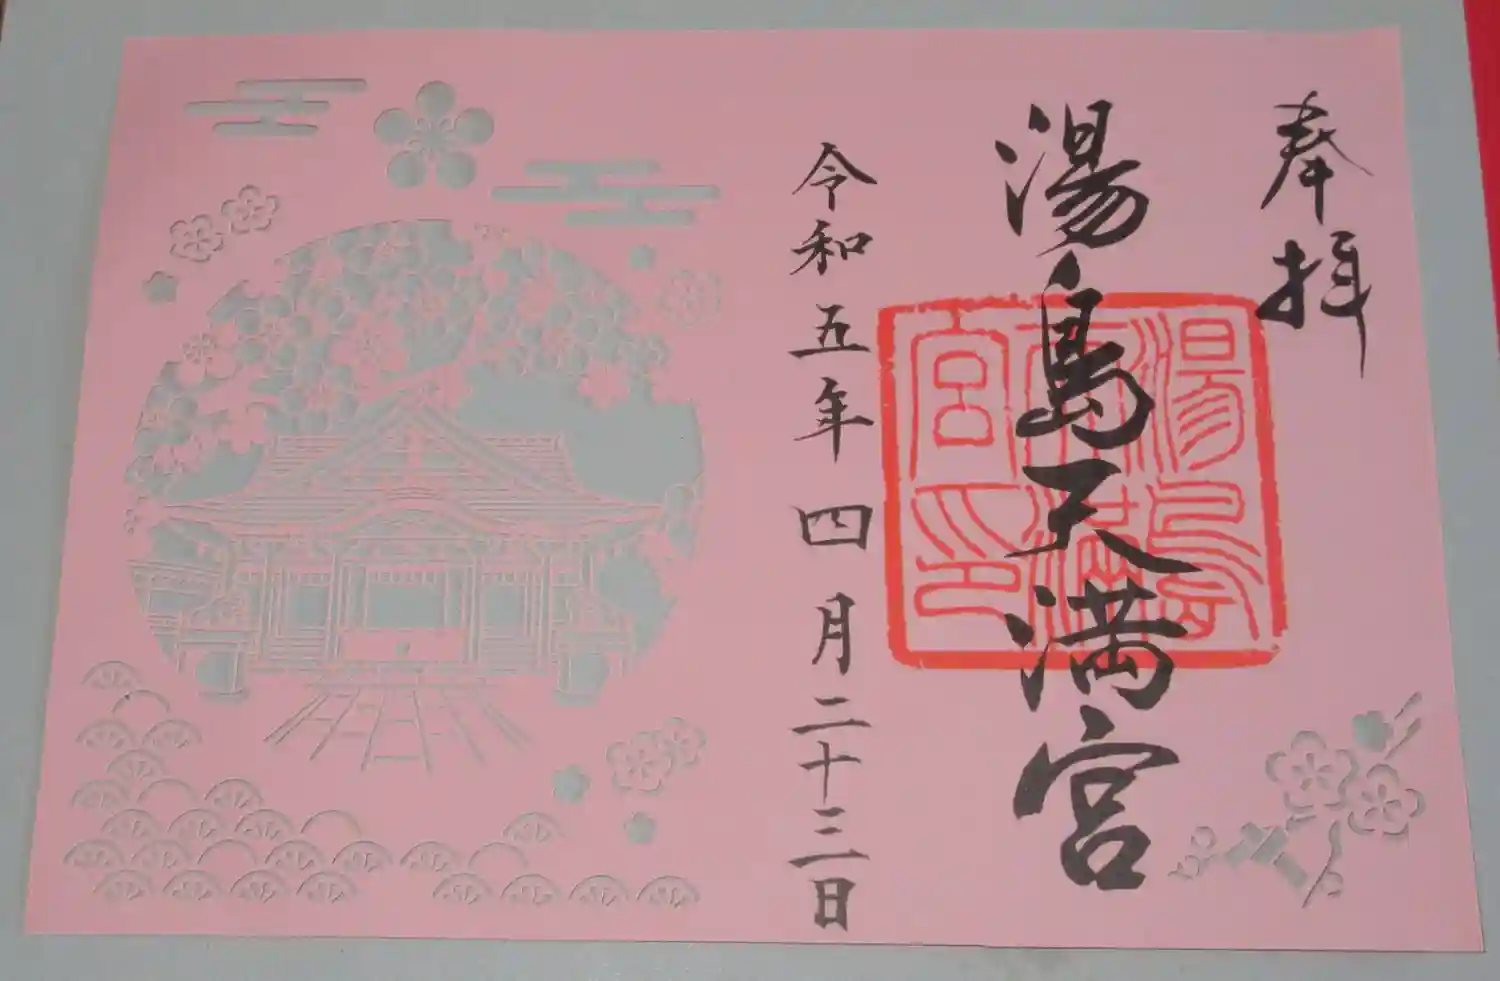 奉拝
湯島天満宮
湯島天満宮印
令和五年四月二十三日